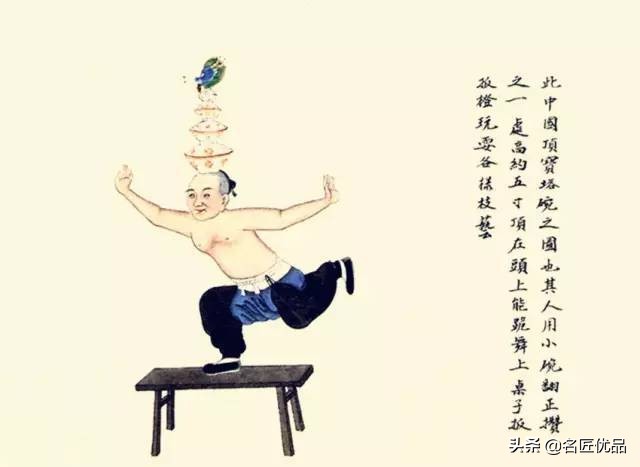 此中國頂寶塔碗之圖也其人用小碗翻正攢
之一處高約五寸頂在頭上能跪舞上桌子扳
扳橙玩耍各樣枝藝
头条 @名匠优品